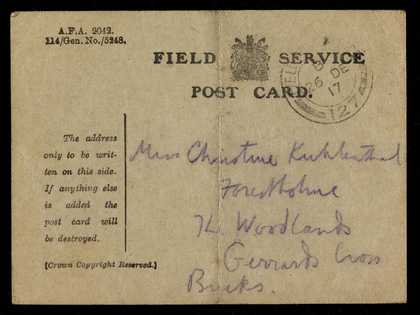 A.F.A. 2042.
114/Gen. No./5248.
FIELD SERVICE
POST CARD.
FIEL
26 DE
17
127
The address
only to be writ-
ten on this side.
If anything else
is added the
post card will
be destroyed.
(Crown Copyright Reserved.)
Miss Christine Kuhlenthal
Forestholme
The Woodlands
Gerrards Cross
Bucks.